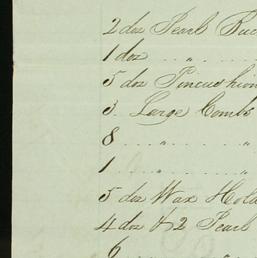 2 doz Pearl Buc
1 doz " 
5 doz Pincushion
3 Large Combs
8 " "
1 " "
5 doz Wax Hold
4 doz & 2 Pearl
6 " "